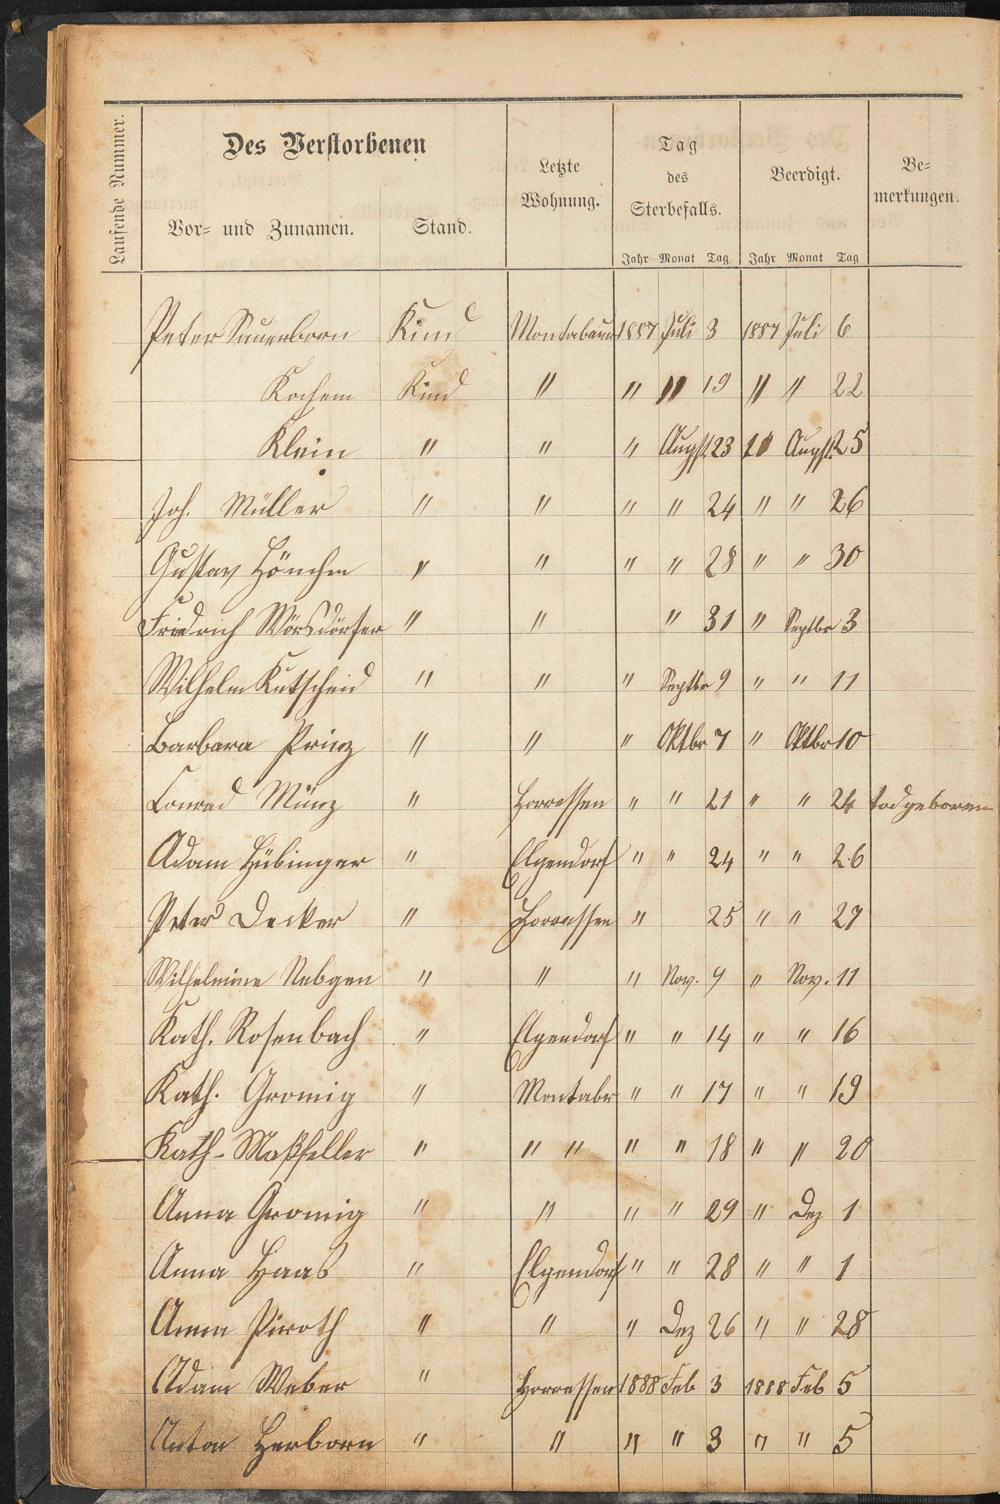 Laufende Nummer.
Des Verstorbenen
Vor- und Zunamen. Stand.
Letzte Wohnung.
Tag des Sterbefalls.
Beerdigt.
Be-merkungen.
Jahr Monat Tag Jahr Monat Tag
Peter Sauerborn Kind Montabaur 1887 Juli 3 1887 Juli 6
Kochem Kind " " " 19 " " 22
Klein " " " Augst 23 Augst 25
Joh. Müller " " " " 24 " " 26
Gustav Hönchen " " " " 28 " " 30
Friedrich Wörsdörfer " " " 31 " Septbr 3
Wilhelm Kutscheid " " " Septbr 9 " " 11
Barbara Prinz " " " Oktbr 7 " Oktbr 10
Conrad Münz " Horressen " " 21 " " 24 todgeboren
Adam Hübinger " Elgendorf " " 24 " " 26
Peter Decker " Horressen " 25 " " 27
Wilhelmine Nebgen " " " Nov. 9 " Nov. 11
Kath. Rosenbach " Elgendorf " " 14 " " 16
Kath. Gromig " Montabr " " 17 " " 19
Kath- Maßfeller " " " " " 18 " " 20
Anna Gromig " " " " 29 " Dez 1
Anna Haas " Elgendorf " " 28 " " 1
Anna Piroth " " " Dez 26 " " 28
Adam Weber " Horressen 1888 Feb 3 1888 Feb 5
Anton Herborn " " " " 3 " " 5